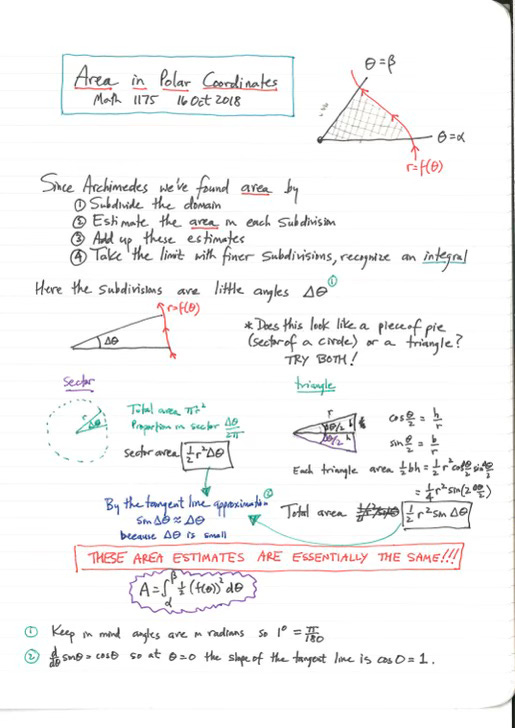 Area in Polar Coordinates
Math 1175 16 Oct 2018
θ=β
θ=α
r=f(θ)
Since Archimedes we've found area by
① Subdivide the domain
② Estimate the area in each Subdivision
③ Add up these estimates
④ Take the limit with finer Subdivisions, recognize an integral
Here the Subdivisions are little angles Δθ ①
r=f(θ)
Δθ
* Does this look like a piece of pie
(sector of a circle) or a triangle?
TRY BOTH!
sector
r
Δθ
Total area πr²
Proportion in sector Δθ/2π
sector area ½r²Δθ
triangle
r
Δθ/2 h
Δθ/2 b
cos θ/2 = h/r
sin θ/2 = b/r
Each triangle area ½bh = ½r² cos θ/2 sin θ/2
= ¼r² sin(2 Δθ/2)
Total area ½r² sin Δθ
By the tangent line approximation ②
sin Δθ ≈ Δθ
because Δθ is small
THESE AREA ESTIMATES ARE ESSENTIALLY THE SAME!!!
A = ∫_α^β ½ (f(θ))² dθ
① Keep in mind angles are in radians so 1° = π/180
② d/dθ sinθ = cosθ so at θ=0 the slope of the tangent line is cos 0 = 1.